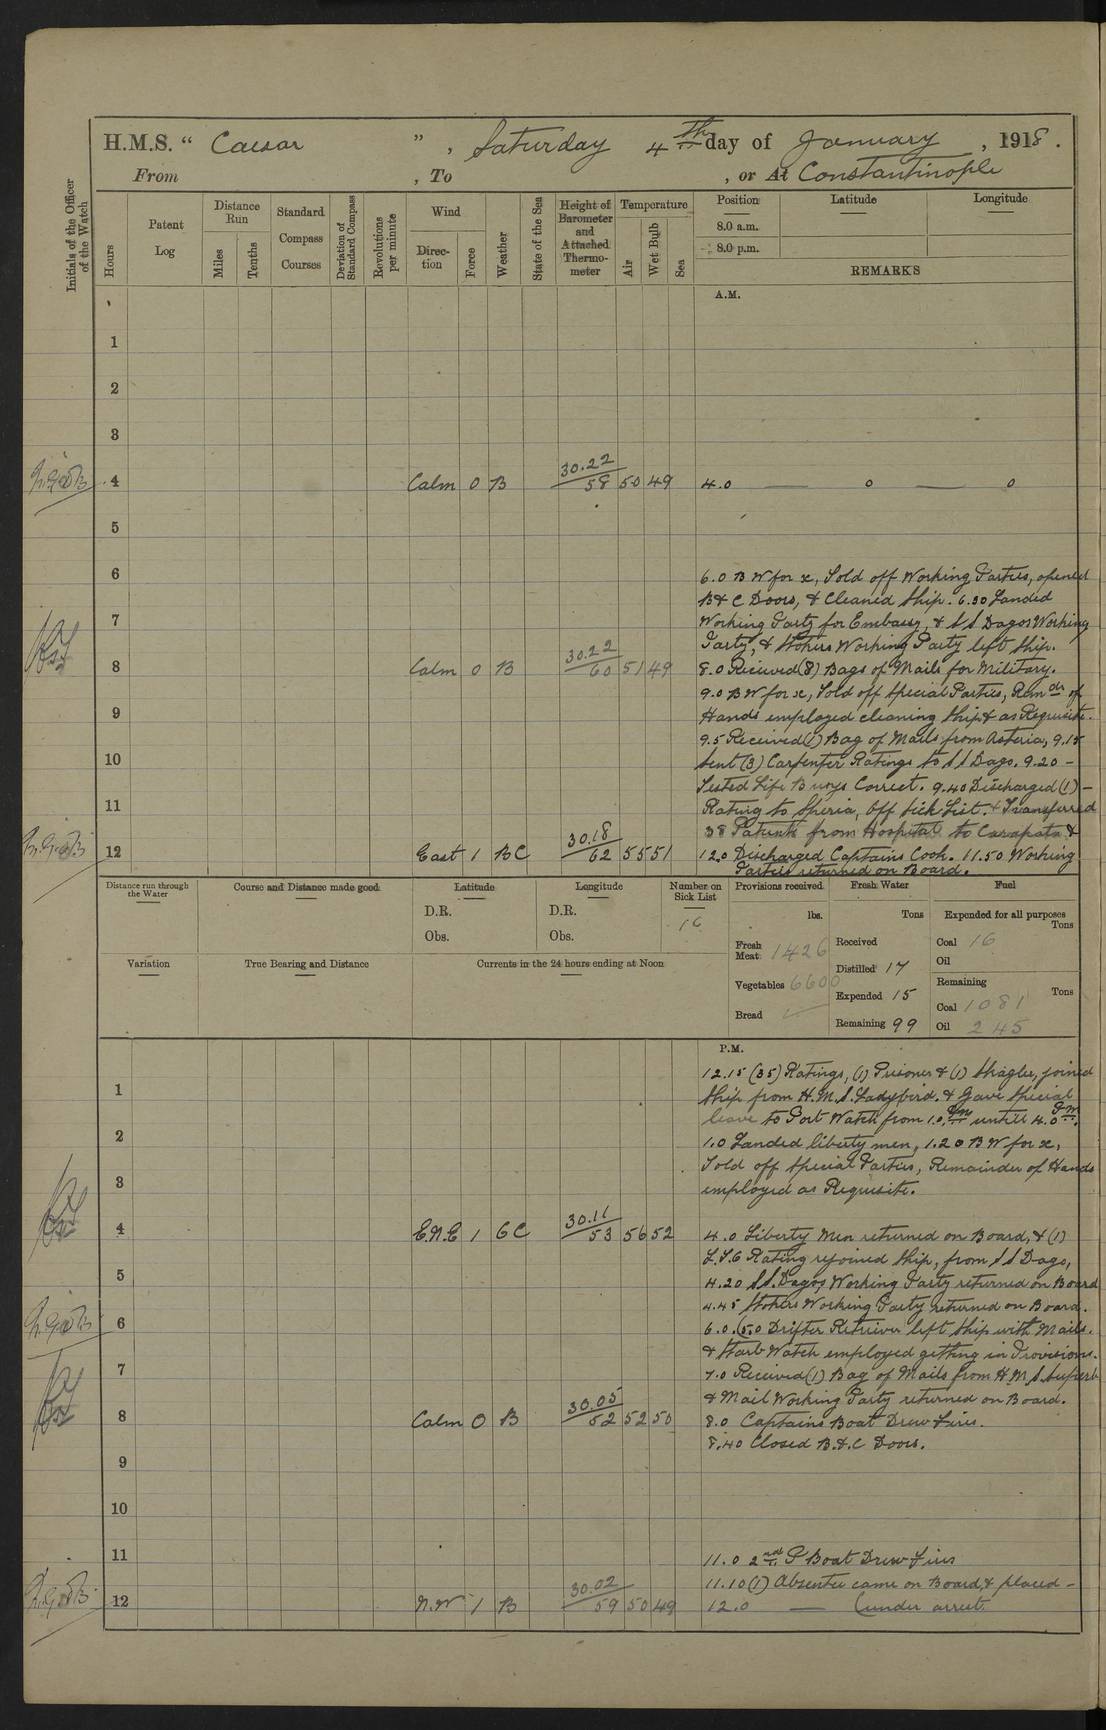 H.M.S. “ Caesar ” , Saturday 4th day of January , 1918 .
From , To , or At Constantinople
Initials of the Officer of the Watch
Hours
Patent Log
Distance Run
Miles
Tenths
Standard Compass Courses
Deviation of Standard Compass
Revolutions per minute
Wind
Direc- tion
Force
Weather
State of the Sea
Height of Barometer and Attached Thermo- meter
Temperature
Air
Wet Bulb
Sea
Position Latitude Longitude
8.0 a.m.
8.0 p.m.
REMARKS
A.M.
1
2
3
4 Calm 0 B 30.22 58 50 49 4.0 — 0 — 0
5
6 6.0 B W for x, Told off Working Parties, opened
B & C Doors, & Cleaned Ship. 6.30 Landed
7 Working Party for Embassy, & S S Dagos Working
Party, & Stokers Working Party left Ship.
8 Calm 0 B 30.22 60 51 49 8.0 Recieved (8) Bags of Mails for Military.
9.0 B W for x, Told off Special Parties, Remdr of
9 Hands employed cleaning Ship & as Requisite.
9.5 Received (1) Bag of Mails from Asteria, 9.15
10 Sent (3) Carpenter Ratings to S S Dago. 9.20 –
Tested Life Buoys Correct. 9.40 Discharged (1) –
11 Rating to Iperia, Off Sick List. & Transferred
38 Patients from Hospital to Carapata &
12 East 1 BC 30.18 62 55 51 12.0 Discharged Captains Cook. 11.50 Working
Parties returned on Board.
Distance run through the Water
Course and Distance made good
Latitude
D.R.
Obs.
Longitude
D.R.
Obs.
Number on Sick List
16
Provisions received
lbs.
Fresh Meat 1426
Vegetables 6600
Bread
Fresh Water
Tons
Received
Distilled 17
Expended 15
Remaining 99
Fuel
Expended for all purposes
Tons
Coal 16
Oil
Remaining
Tons
Coal 1081
Oil 245
Variation
True Bearing and Distance
Currents in the 24 hours ending at Noon
P.M.
12.15 (35) Ratings, (1) Prisoner & (1) Stragler, joined
1 Ship from H.M.S. Ladybird. & Gave Special
leave to Port Watch from 1.0 PM untill 4.0 PM.
2 1.0 Landed liberty men, 1.20 B W for x,
Told off Special Parties, Remainder of Hands
3 employed as Requisite.
4 E.N.E 1 GC 30.11 53 56 52 4.0 Liberty Men returned on Board, & (1)
L.T.O Rating rejoined Ship, from S S Dago,
5 4.20 S S. Dagos Working Party returned on Board
4.45 Stokers Working Party returned on Board.
6 6.0. (5.0 Drifter Retriever left Ship with Mails.
& Starb Watch employed getting in Provisions.
7 7.0 Received (1) Bag of Mails from H.M.S. Superb
& Mail Working Party returned on Board.
8 Calm 0 B 30.05 52 52 50 8.0 Captains Boat Drew Fires.
8.40 Closed B. & C Doors.
9
10
11 11.0 2nd P Boat Drew Fires
11.10 (1) Absentee came on Board, & placed –
12 N.W 1 B 30.02 59 50 49 12.0 — (under arrest.